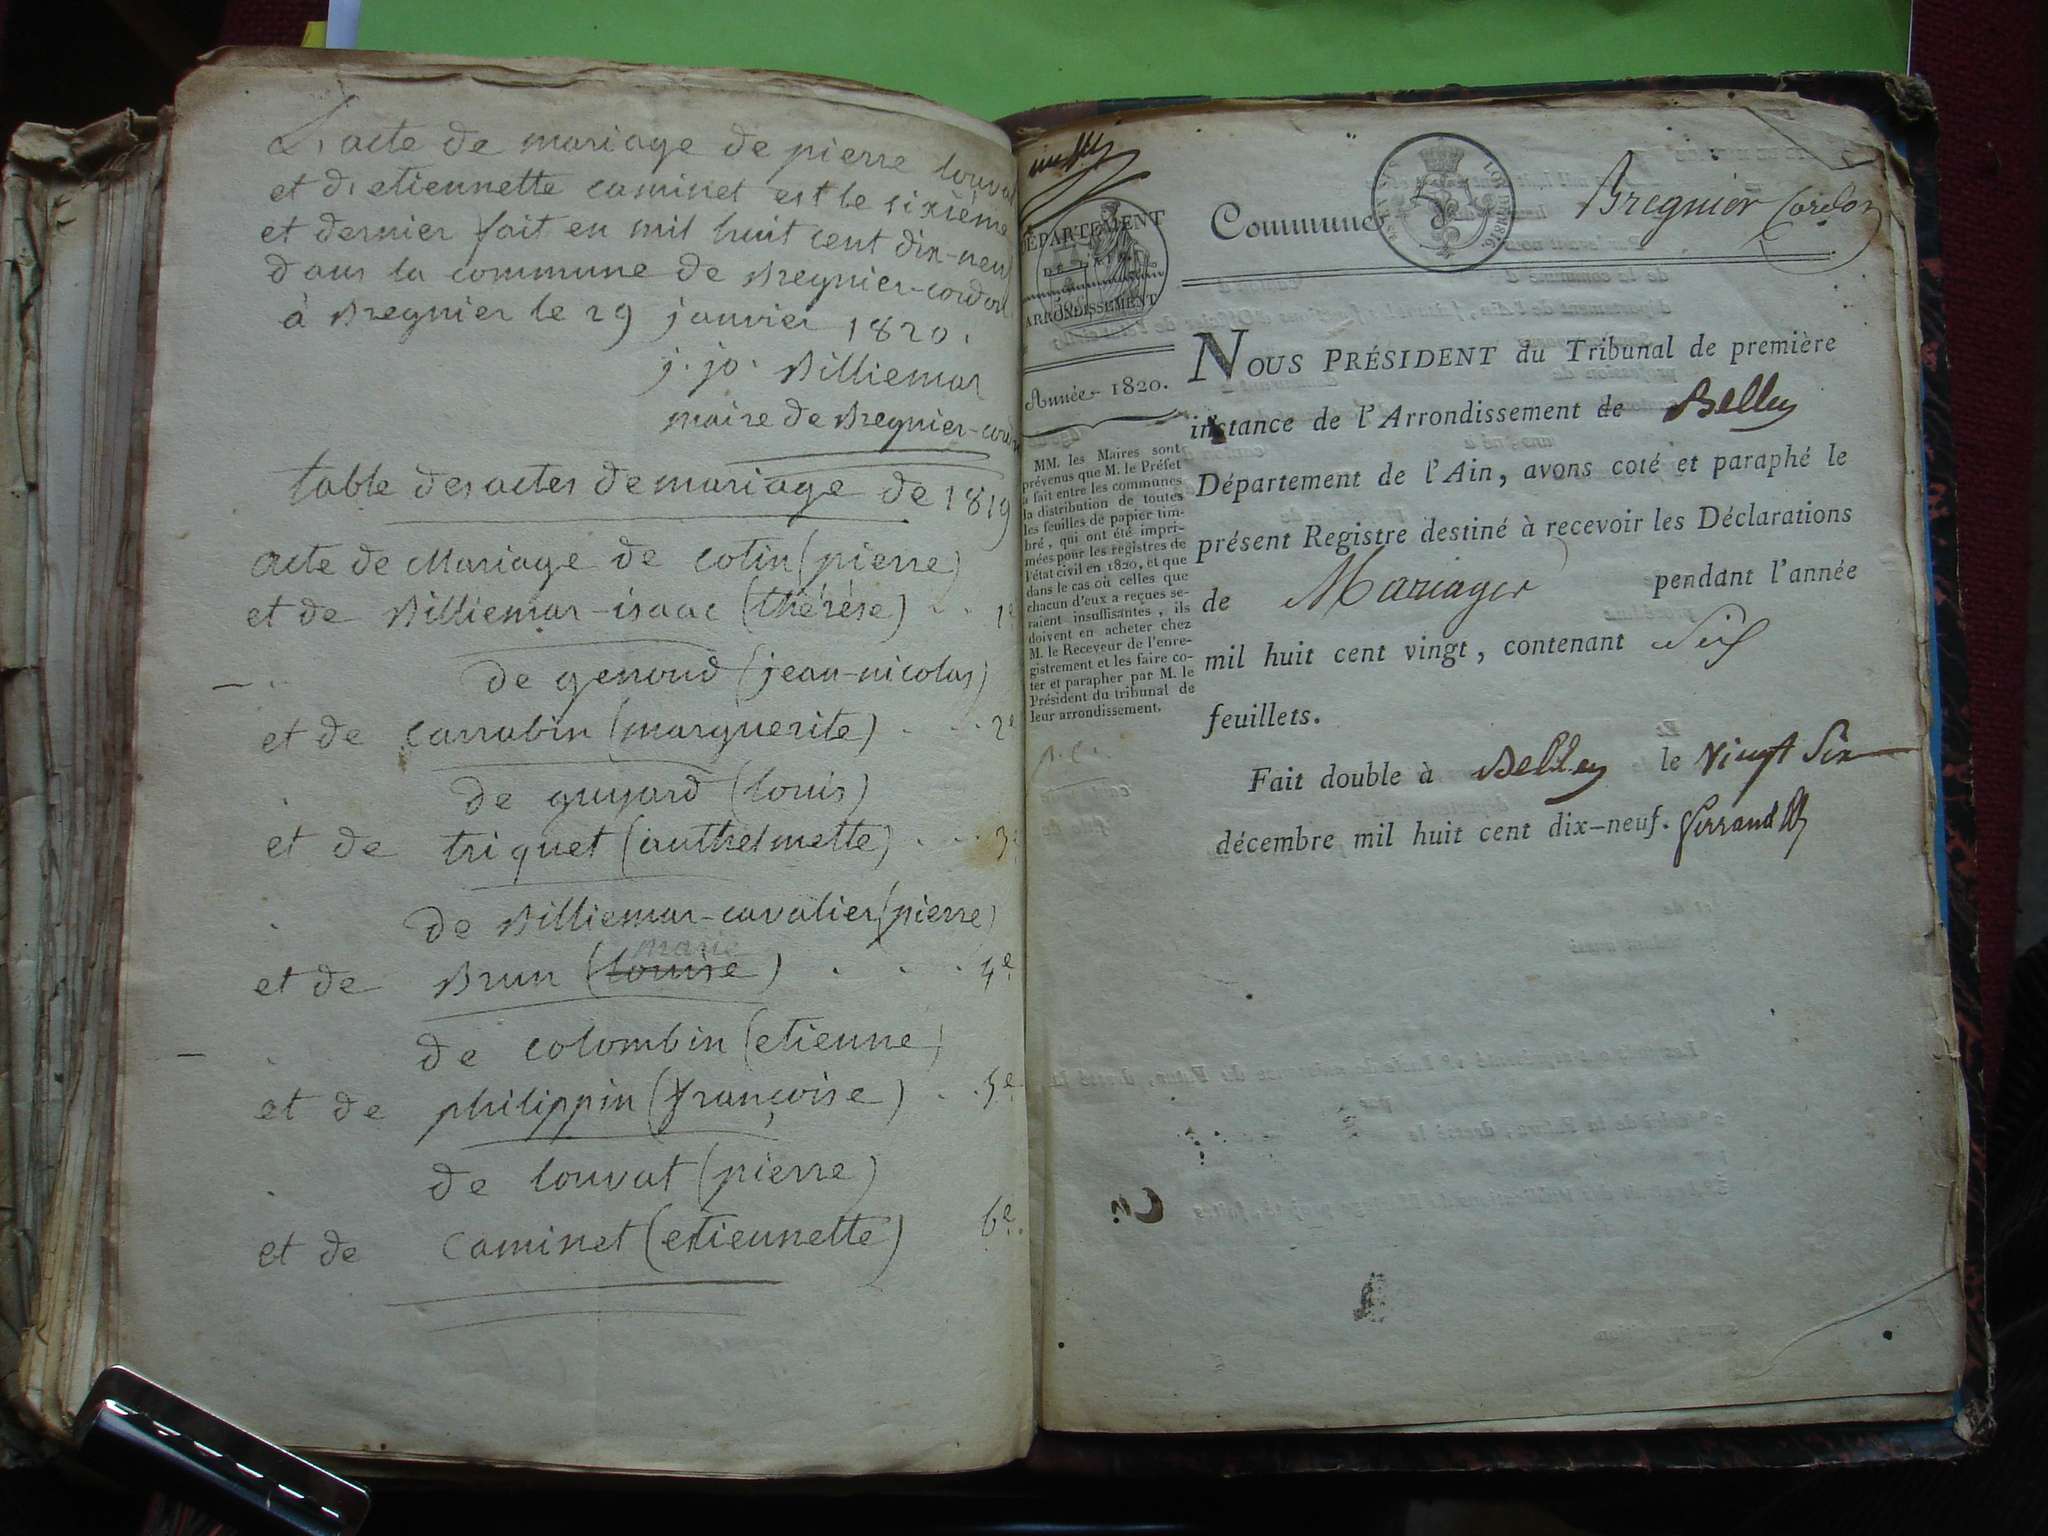 L'acte de mariage de pierre louvat
et d'etiennette caminet est le sixième
et dernier fait en mil huit cent dix-neuf
dans la commune de Bregnier-cordon
à Bregnier le 29 janvier 1820.
j. jo. Billiemaz
maire de Bregnier-cordon
table des actes de mariage de 1819
acte de Mariage de cotin (pierre)
et de Billiemaz-isaac (thérèse) . . 1e
de genoud (jean-nicolas)
et de carrabin (marguerite) . . . 2e
de guyard (louis)
et de triquet (anthelmette) . . . 3e
de Billiemaz-cavalier (pierre)
marie
et de Brun (louise) . . . 4e
de colombin (etienne)
et de philippin (françoise) . . 5e
de louvat (pierre)
et de Caminet (etiennette) 6e.
DÉPARTEMENT
DE L'AIN.
ARRONDISSEMENT
Année 1820.
MM. les Maires sont
prévenus que M. le Préfet
a fait entre les communes
la distribution de toutes
les feuilles de papier tim-
bré, qui ont été impri-
mées pour les registres de
l'état civil en 1820, et que
dans le cas où celles que
chacun d'eux a reçues se-
raient insuffisantes, ils
doivent en acheter chez
M. le Receveur de l'enre-
gistrement et les faire co-
ter et parapher par M. le
Président du tribunal de
leur arrondissement.
Commune Bregnier Cordon
LOI DE 1816.
NOUS PRÉSIDENT du Tribunal de première
instance de l'Arrondissement de Belley
Département de l'Ain, avons coté et paraphé le
présent Registre destiné à recevoir les Déclarations
de Mariages pendant l'année
mil huit cent vingt, contenant Six
feuillets.
Fait double à Belley le Vingt Six
décembre mil huit cent dix-neuf.